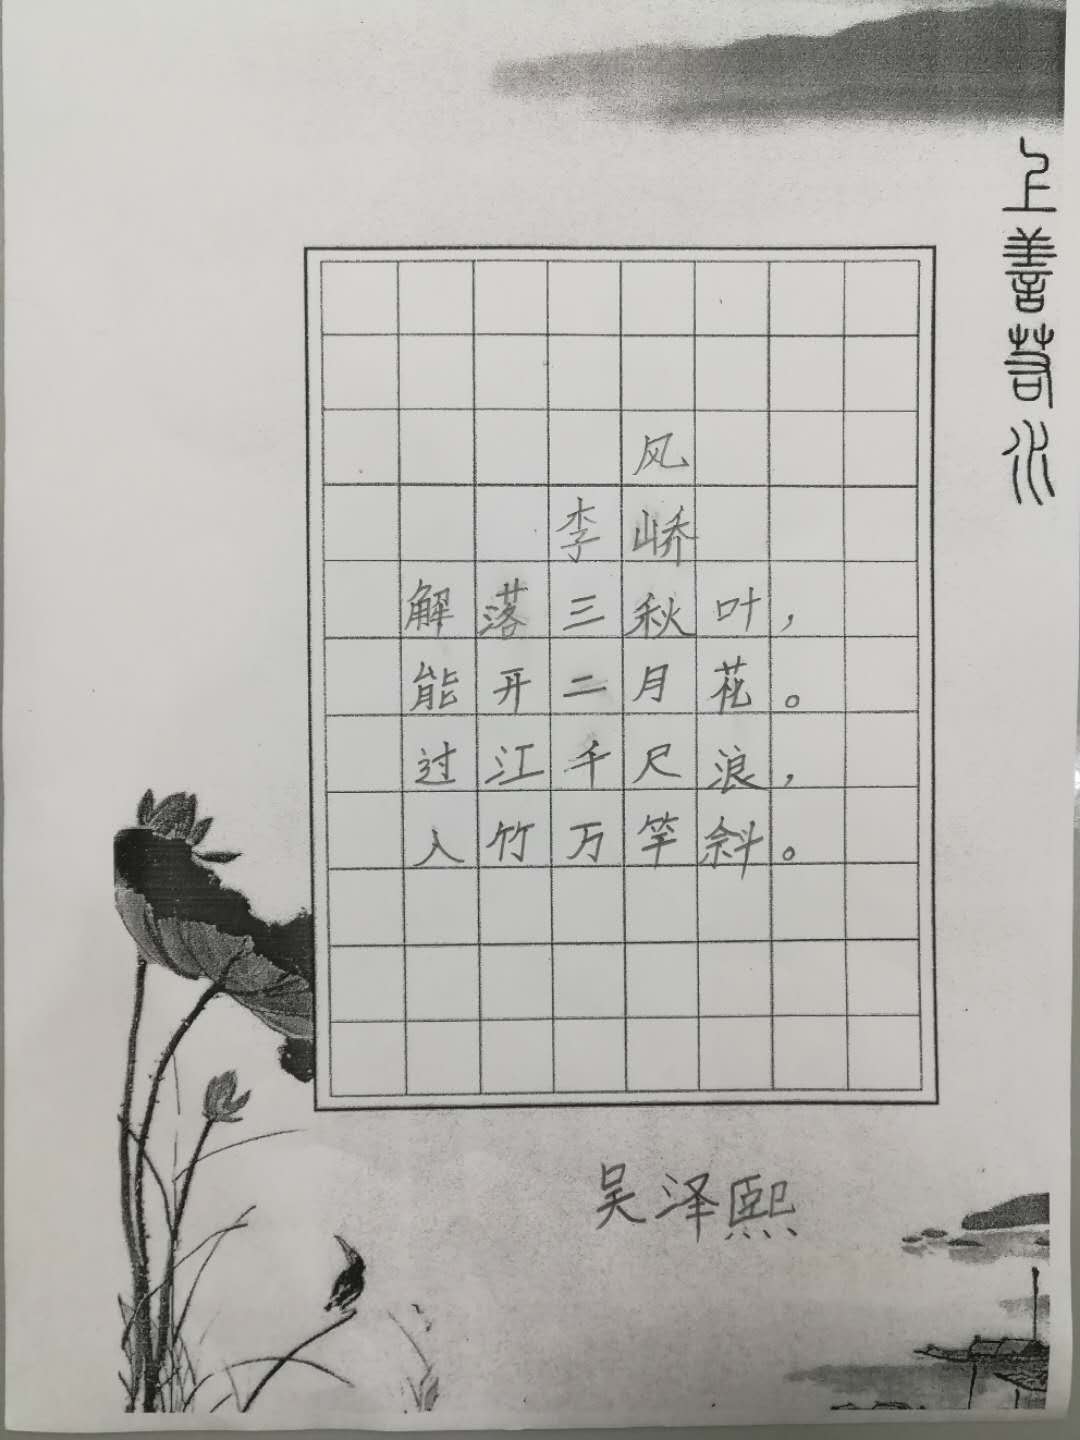 上善若水
风
李峤
解落三秋叶，
能开二月花。
过江千尺浪，
入竹万竿斜。
吴泽熙